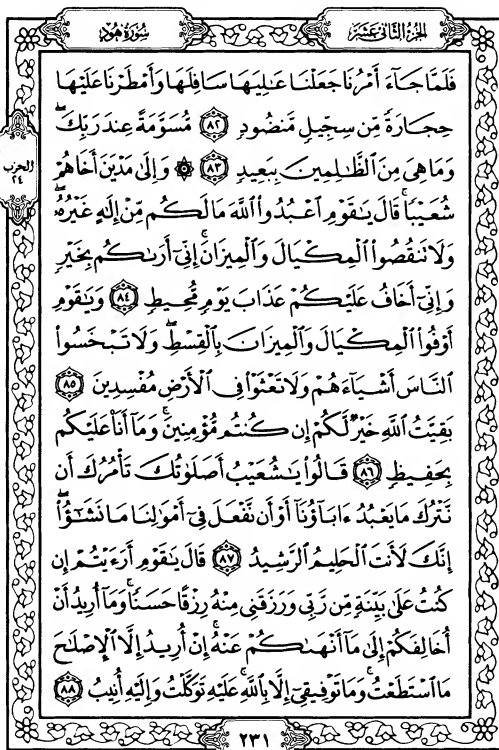 سُورَةُ هُودٍ
الجُزْءُ الثَّانِى عَشَرَ
فَلَمَّا جَآءَ أَمْرُنَا جَعَلْنَا عَٰلِيَهَا سَافِلَهَا وَأَمْطَرْنَا عَلَيْهَا
حِجَارَةً مِّن سِجِّيلٍ مَّنضُودٍ ٨٢ مُّسَوَّمَةً عِندَ رَبِّكَ ۖ
وَمَا هِىَ مِنَ ٱلظَّٰلِمِينَ بِبَعِيدٍ ٨٣ ۞ وَإِلَىٰ مَدْيَنَ أَخَاهُمْ
شُعَيْبًا ۚ قَالَ يَٰقَوْمِ ٱعْبُدُوا۟ ٱللَّهَ مَا لَكُم مِّنْ إِلَٰهٍ غَيْرُهُۥ ۖ
وَلَا تَنقُصُوا۟ ٱلْمِكْيَالَ وَٱلْمِيزَانَ ۚ إِنِّىٓ أَرَىٰكُم بِخَيْرٍ
وَإِنِّىٓ أَخَافُ عَلَيْكُمْ عَذَابَ يَوْمٍ مُّحِيطٍ ٨٤ وَيَٰقَوْمِ
أَوْفُوا۟ ٱلْمِكْيَالَ وَٱلْمِيزَانَ بِٱلْقِسْطِ ۖ وَلَا تَبْخَسُوا۟
ٱلنَّاسَ أَشْيَآءَهُمْ وَلَا تَعْثَوْا۟ فِى ٱلْأَرْضِ مُفْسِدِينَ ٨٥
بَقِيَّتُ ٱللَّهِ خَيْرٌ لَّكُمْ إِن كُنتُم مُّؤْمِنِينَ ۚ وَمَآ أَنَا۠ عَلَيْكُم
بِحَفِيظٍ ٨٦ قَالُوا۟ يَٰشُعَيْبُ أَصَلَوٰتُكَ تَأْمُرُكَ أَن
نَّتْرُكَ مَا يَعْبُدُ ءَابَآؤُنَآ أَوْ أَن نَّفْعَلَ فِىٓ أَمْوَٰلِنَا مَا نَشَٰٓؤُا۟ ۖ
إِنَّكَ لَأَنتَ ٱلْحَلِيمُ ٱلرَّشِيدُ ٨٧ قَالَ يَٰقَوْمِ أَرَءَيْتُمْ إِن
كُنتُ عَلَىٰ بَيِّنَةٍ مِّن رَّبِّى وَرَزَقَنِى مِنْهُ رِزْقًا حَسَنًا ۚ وَمَآ أُرِيدُ أَنْ
أُخَالِفَكُمْ إِلَىٰ مَآ أَنْهَىٰكُمْ عَنْهُ ۚ إِنْ أُرِيدُ إِلَّا ٱلْإِصْلَٰحَ
مَا ٱسْتَطَعْتُ ۚ وَمَا تَوْفِيقِىٓ إِلَّا بِٱللَّهِ ۚ عَلَيْهِ تَوَكَّلْتُ وَإِلَيْهِ أُنِيبُ ٨٨
الحزب
٢٤
٢٣١